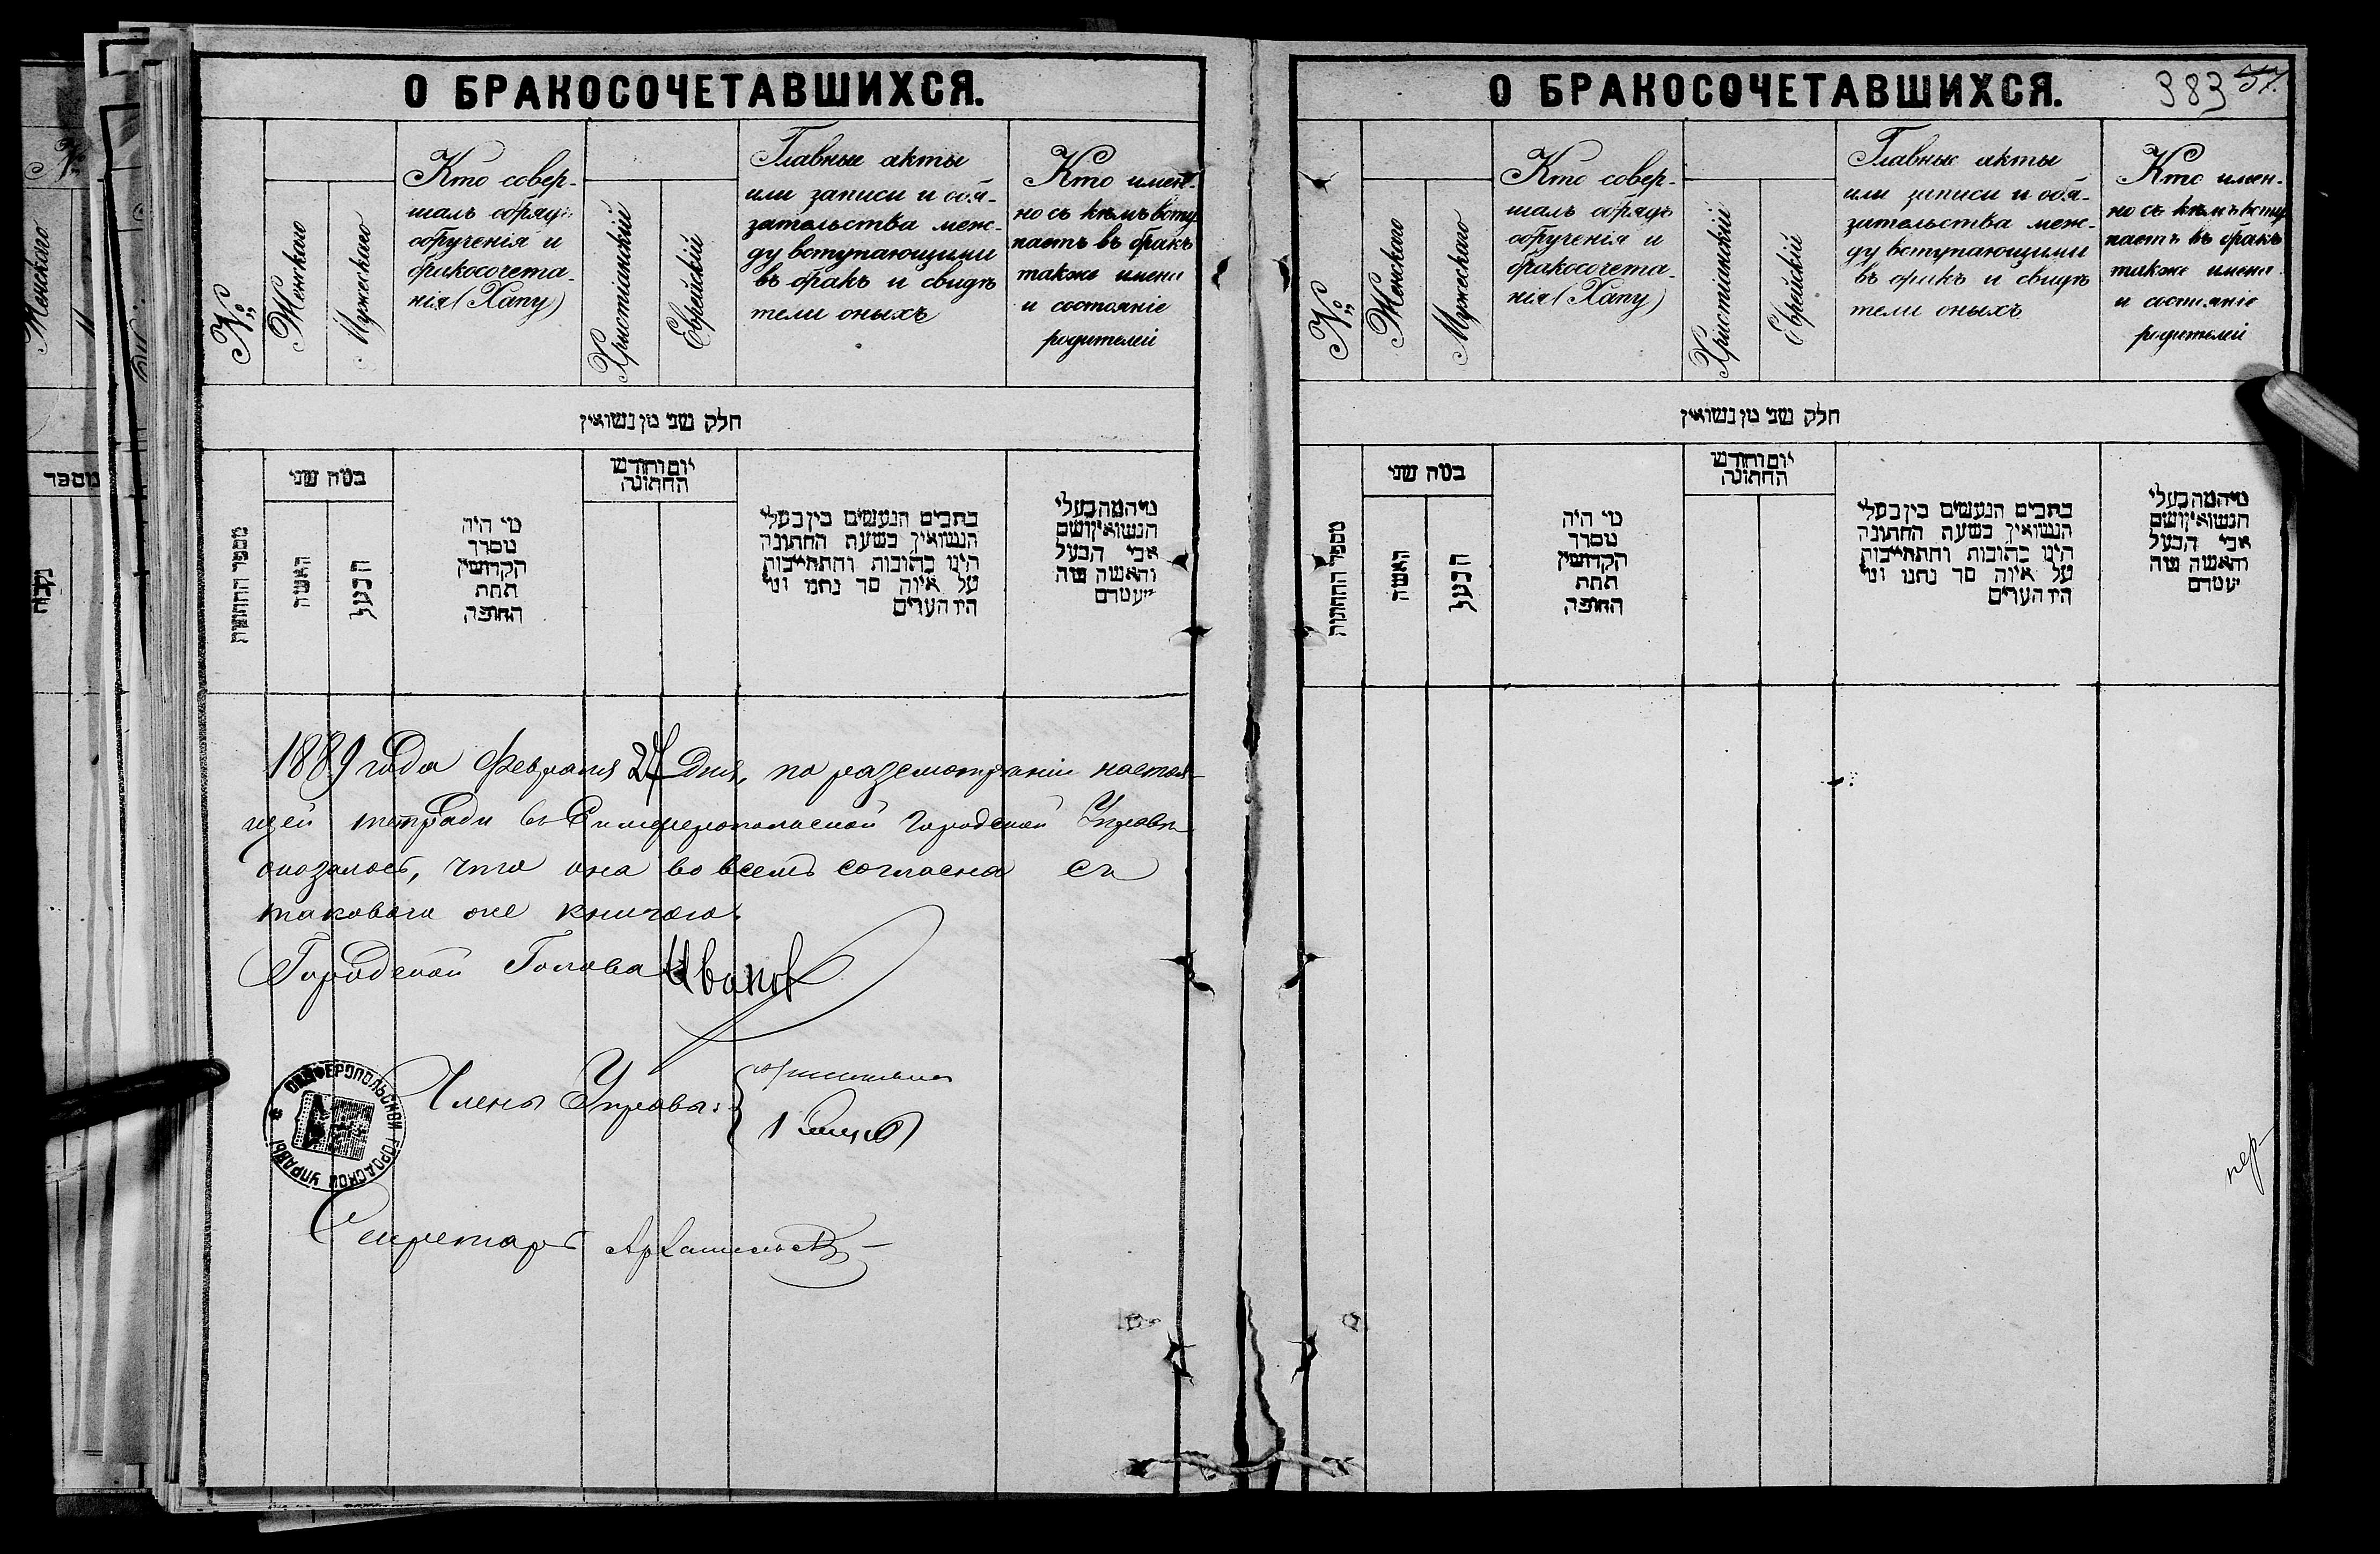 О БРАКОСОЧЕТАВШИХСЯ.
№
Женскаго
Мужескаго
Кто совер-
шалъ обрядъ
обрученія и
бракосочета-
нія (Хапу)
Христіанскій
Еврейскій
Главные акты
или записи и обя-
зательства меж-
ду вступающими
въ бракъ и свидѣ
тели оныхъ
Кто имен-
но съ кѣмъ всту
паетъ въ бракъ
также имена
и состояніе
родителей
חלק שני מן נשואין
מספר החתונות
כמה שני
האשה
הבעל
מי היה
מסדר
הקדושין
תחת
החופה
יום וחודש
החתונה
כתבים הנעשים בין בעלי
הנשואין בשעת החתונה
היינו כתובות והתחייבות
על איזה סך נתנו ומי
היו העדים
מי המה בעלי
הנשואין ושם
אבי הבעל
והאשה ומה
מעמדם
1889 года Февраля 27 дня, по разсмотрѣніи настоя-
щей тетради въ Симферопольской Городской Управѣ
оказалось, что она во всемъ согласна съ
таковою же книгою.
Городской Голова Иванов
Члены Управы:
Секретарь
СИМФЕРОПОЛЬСКОЙ ГОРОДСКОЙ УПРАВЫ
О БРАКОСОЧЕТАВШИХСЯ.
383 57.
№
Женскаго
Мужескаго
Кто совер-
шалъ обрядъ
обрученія и
бракосочета-
нія (Хапу)
Христіанскій
Еврейскій
Главные акты
или записи и обя-
зательства меж-
ду вступающими
въ бракъ и свидѣ
тели оныхъ
Кто имен-
но съ кѣмъ всту
паетъ въ бракъ
также имена
и состояніе
родителей
חלק שני מן נשואין
מספר החתונות
כמה שני
האשה
הבעל
מי היה
מסדר
הקדושין
תחת
החופה
יום וחודש
החתונה
כתבים הנעשים בין בעלי
הנשואין בשעת החתונה
היינו כתובות והתחייבות
על איזה סך נתנו ומי
היו העדים
מי המה בעלי
הנשואין ושם
אבי הבעל
והאשה ומה
מעמדם